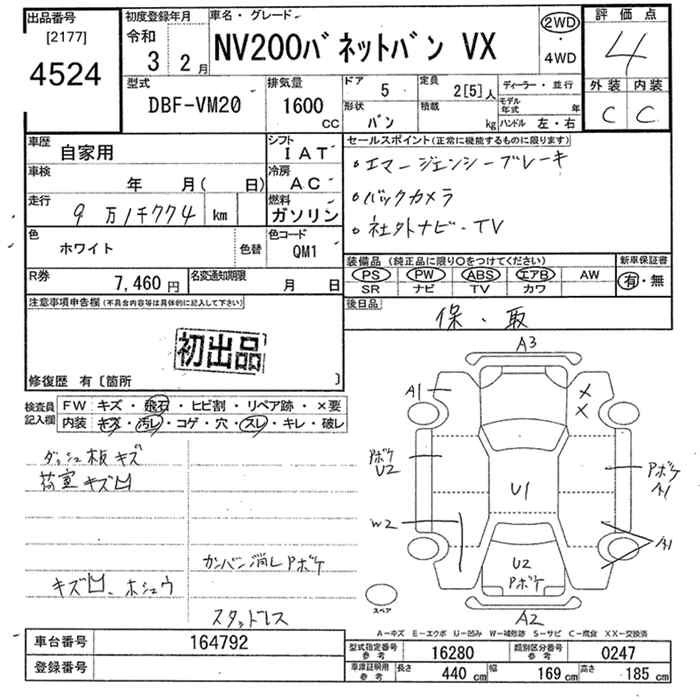 出品番号
[2177]
4524
初度登録年月
令和
3 2月
車名・グレード
NV200バネットバン VX
2WD
・
4WD
評価点
4
外装 内装
C C
型式
DBF-VM20
排気量
1600
CC
ドア 5
形状 バン
定員 2[5]人
積載 kg
ディーラー・並行
モデル年式 年
ハンドル 左・右
車歴
自家用
シフト
IAT
車検
年 月( 日)
冷房
AC
走行
9万1千774 km
燃料
ガソリン
色
ホワイト
色替
色コード
QM1
R券
7,460円
名変通知期限
月 日
セールスポイント(正常に機能するものに限ります)
・エマージェンシーブレーキ
・バックカメラ
・社外ナビ・TV
装備品 (純正品に限り○をつけてください)
新車保証書
PS PW ABS エアB AW
SR ナビ TV カワ
有・無
後日品
保・取
注意事項申告欄(不具合内容等は具体的に記入して下さい)
初出品
修復歴 有〔箇所 〕
検査員
記入欄
FW キズ・飛石・ヒビ割・リペア跡・×要
内装 キズ・汚レ・コゲ・穴・スレ・キレ・破レ
ダッシュ板キズ
荷室キズ凹
カンバン消しPボケ
キズ凹、ホシュウ
スタッドレス
A3
A1
Pボケ
U2
U1
Pボケ
A1
W2
A1
U2
Pボケ
A2
スペア
A-キズ E-エクボ U-凹み W-補修跡 S-サビ C-腐食 XX-交換済
車台番号
164792
登録番号
型式指定番号
参考
16280
類別区分番号
参考
0247
車庫証明用
参考
長さ 440 cm 幅 169 cm 高さ 185 cm